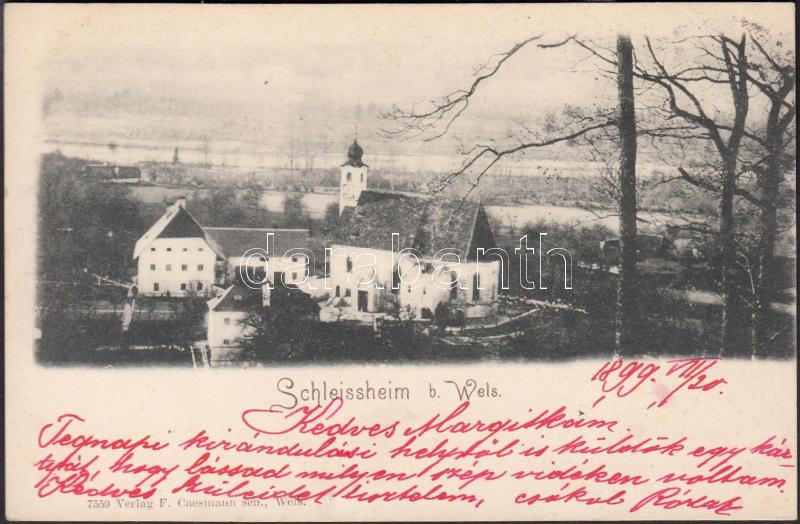 darabanth
Schleissheim b. Wels.
1899. VII/20.
Kedves Margitkám.
Tegnapi kirándulási helyről is küldök egy kár-
tyát, hogy lássad milyen szép vidéken voltam.
Kedves szüleidet tisztelem, csókol Rózsa
7559 Verlag F. Caesmann sen., Wels.